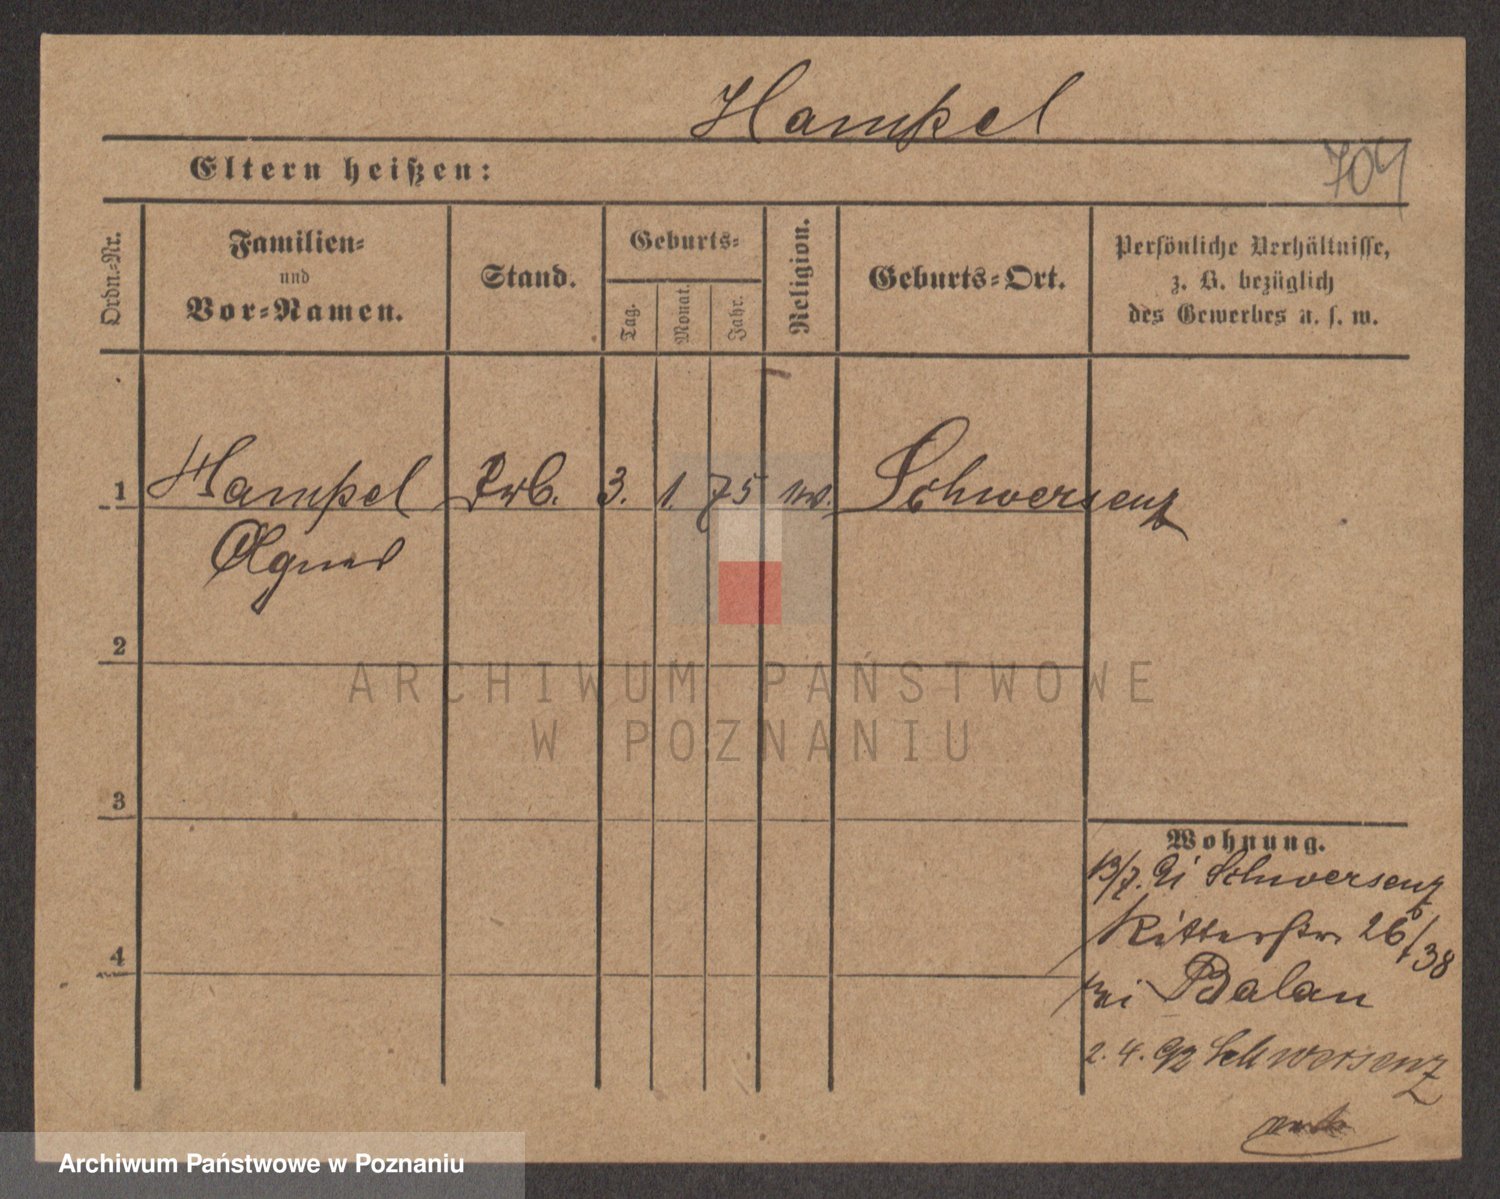 Hampel
Eltern heißen:
704
Ordn.=Nr.
Familien=
und
Vor=Namen.
Stand.
Geburts=
Tag.
Monat.
Jahr.
Religion.
Geburts=Ort.
Persönliche Verhältnisse,
z. B. bezüglich
des Gewerbes u. s. w.
1 Hampel 3. 1. 75 Schwersenz
Agnes
2
3
4
Wohnung.
13/7. 91 Schwersenz
Ritterstr. 26/38
bei Balan
2. 4. 92 Schwersenz
ARCHIWUM PAŃSTWOWE
W POZNANIU
Archiwum Państwowe w Poznaniu